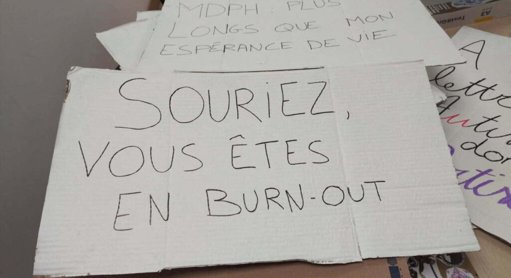 MDPH : PLUS
LONGS QUE MON
ESPÉRANCE DE VIE
SOURIEZ,
VOUS ÊTES
EN BURN-OUT
A
lettre